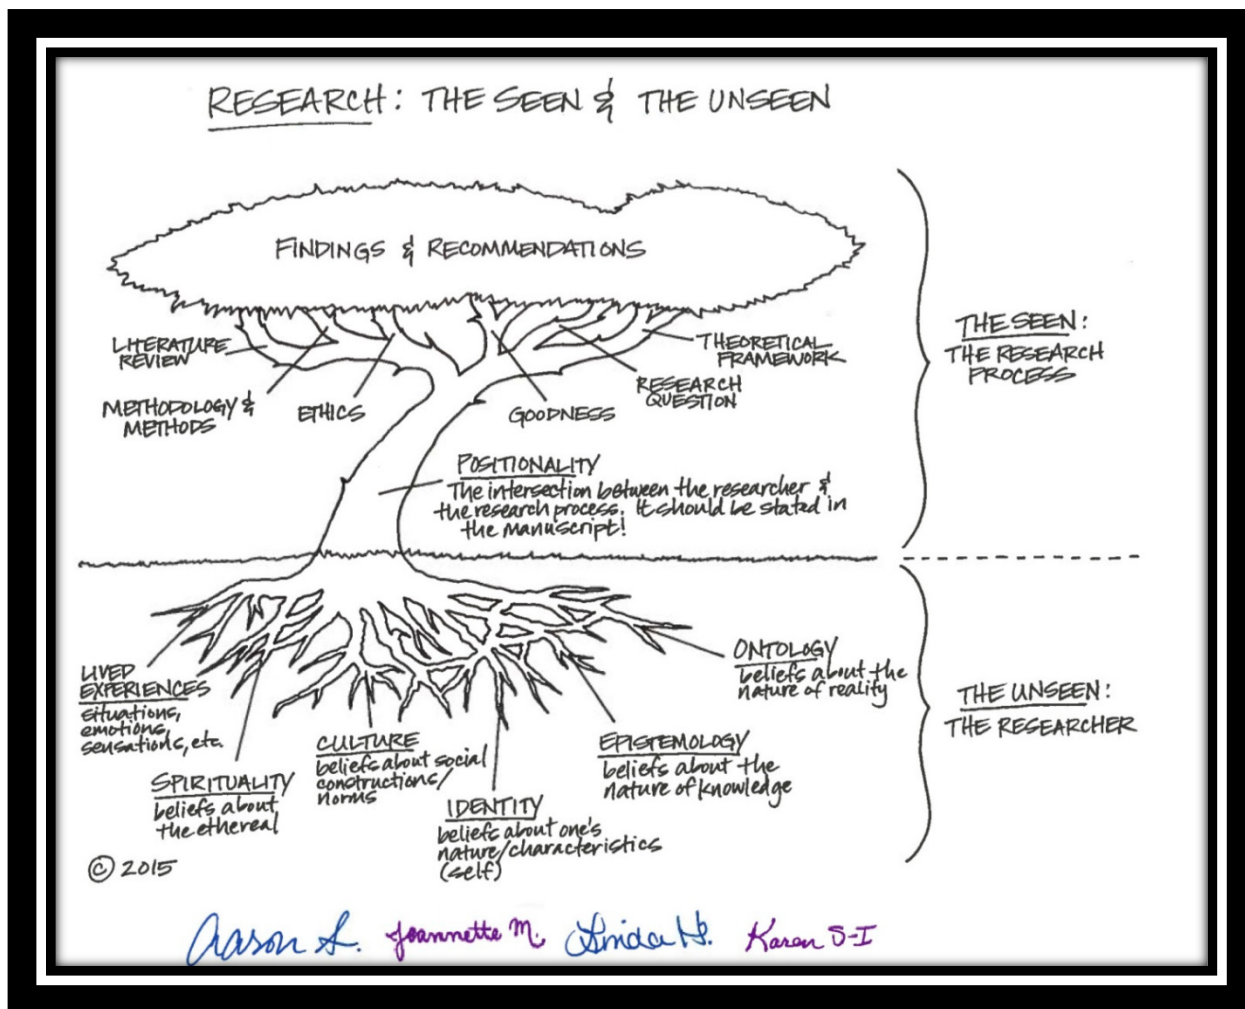 RESEARCH: THE SEEN & THE UNSEEN
FINDINGS & RECOMMENDATIONS
LITERATURE
REVIEW
METHODOLOGY &
METHODS
ETHICS
GOODNESS
RESEARCH
QUESTION
THEORETICAL
FRAMEWORK
THE SEEN:
THE RESEARCH
PROCESS
POSITIONALITY
The intersection between the researcher &
the research process. It should be stated in
the manuscript!
LIVED
EXPERIENCES
situations,
emotions,
sensations, etc.
SPIRITUALITY
beliefs about
the ethereal
CULTURE
beliefs about social
constructions/
norms
IDENTITY
beliefs about one's
nature/characteristics
(self)
EPISTEMOLOGY
beliefs about the
nature of knowledge
ONTOLOGY
beliefs about the
nature of reality
THE UNSEEN:
THE RESEARCHER
© 2015
Aaron S. Jeannette M. Linda H. Karen S-I